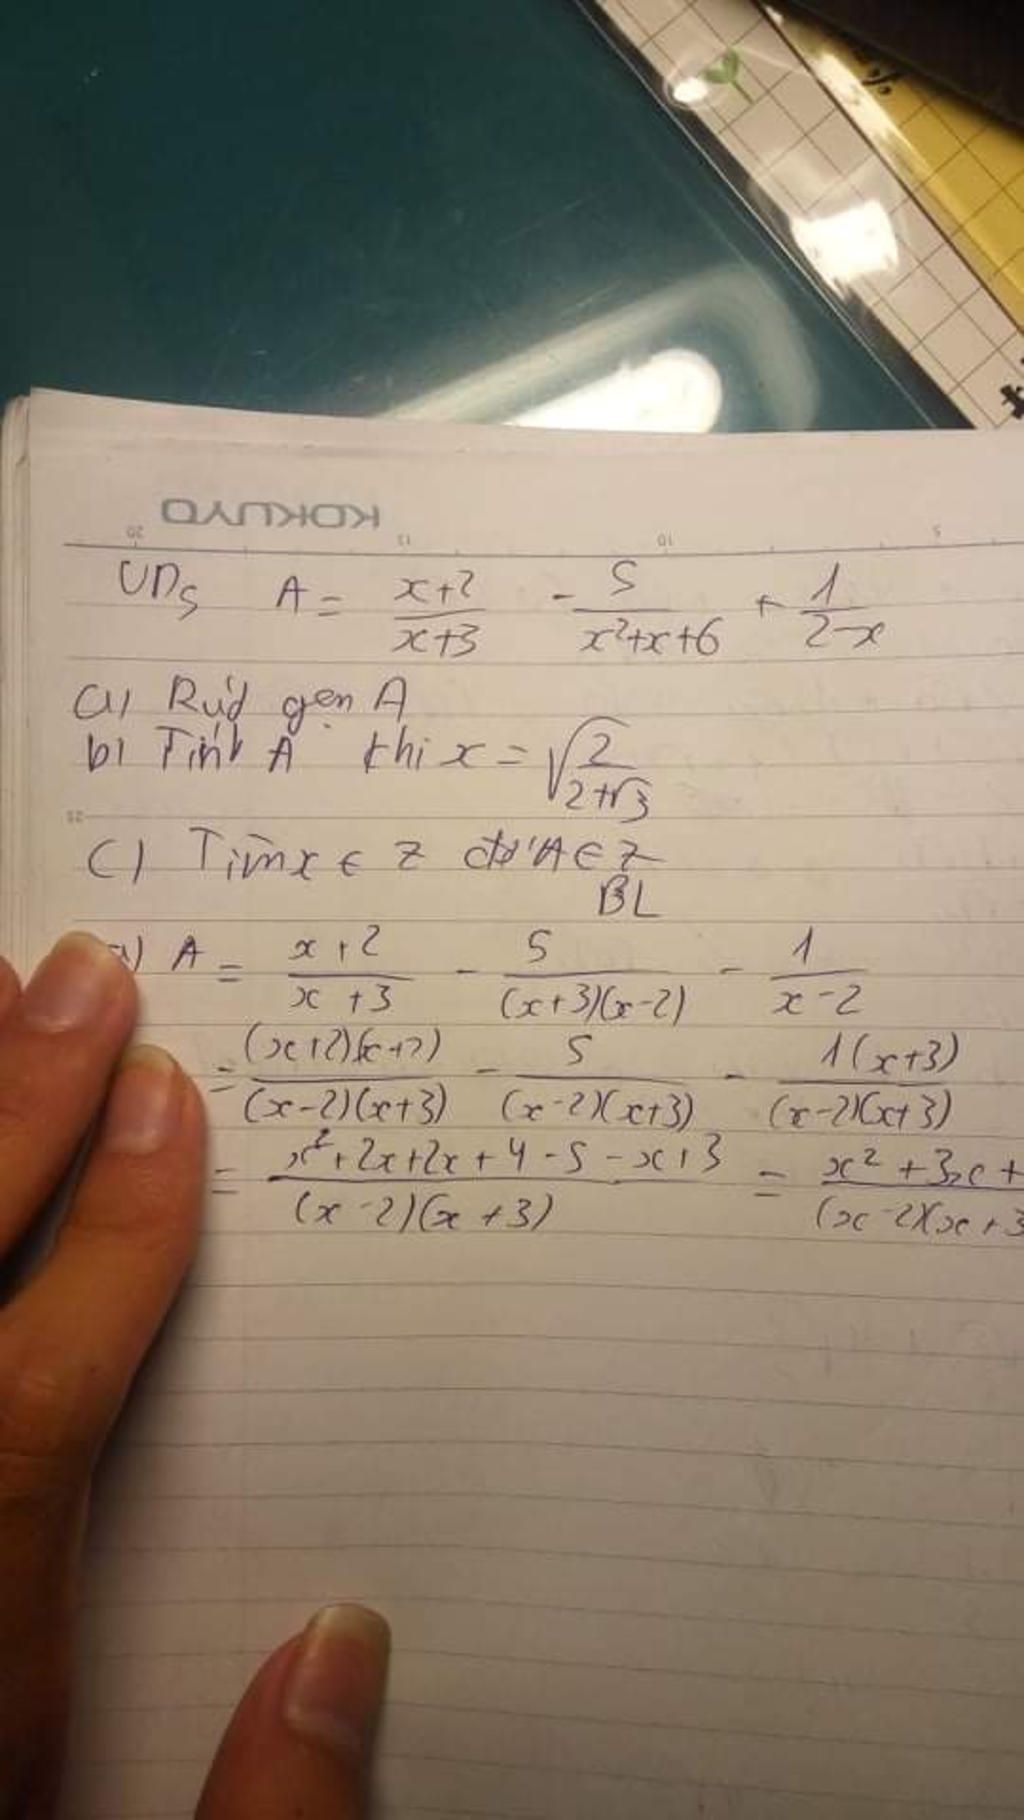 KOKUYO
20 15 10 5
VD5 A = \frac{x+2}{x+3} - \frac{5}{x²+x+6} + \frac{1}{2-x}
a) Rút gọn A
b) Tính A khi x = \sqrt{\frac{2}{2+\sqrt{3}}}
25
c) Tìm x ∈ Z để A ∈ Z
BL
a) A = \frac{x+2}{x+3} - \frac{5}{(x+3)(x-2)} - \frac{1}{x-2}
= \frac{(x+2)(x+2)}{(x-2)(x+3)} - \frac{5}{(x-2)(x+3)} - \frac{1(x+3)}{(x-2)(x+3)}
= \frac{x²+2x+2x+4-5-x+3}{(x-2)(x+3)} = \frac{x²+3x+}{(x-2)(x+3}